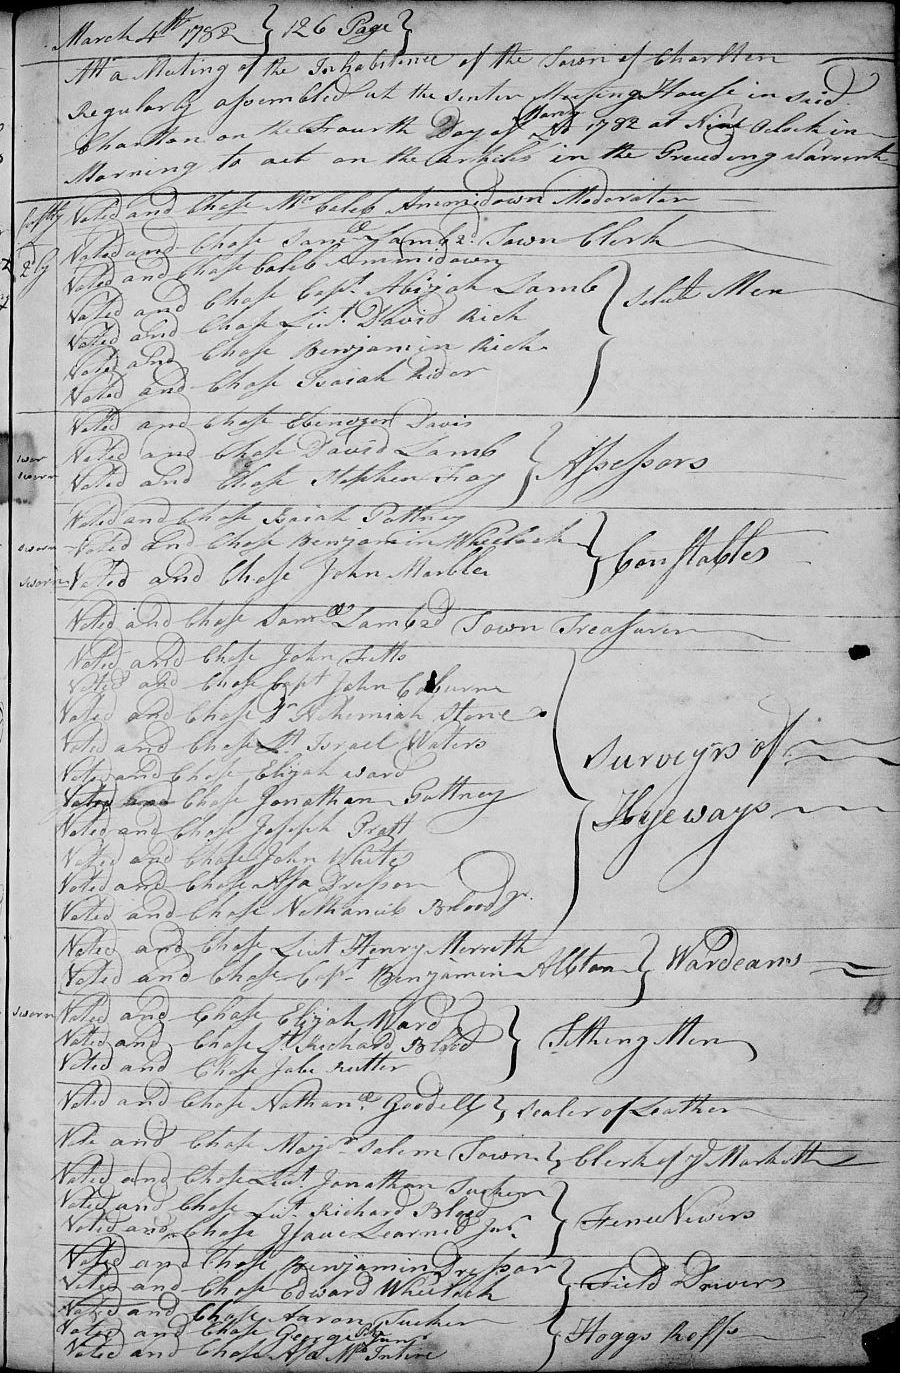 March 4th 1782 } 126 Page }
Att a Meeting of the Inhabitence of the Town of Charlton
Regularly assembled at the senter Meeting House in said
Charlton on the Fourth Day of March AD 1782 at Nine Oclock in
Morning to act on the articles in the Preeding warrent
firstly Voted and Chose Mr Caleb Ammidown Moderator
2ly Voted and Chose Samel Lamb 2d Town Clerk
Voted and Chose Caleb Ammidown
Voted and Chose Capt Abijah Lamb } Select Men
Voted and Chose Liut David Rich
Voted and Chose Benjamin Rich
Voted and Chose Isaiah Rider
Voted and Chose Ebenezer Davis
Voted and Chose David Lamb } Assessors
sworn Voted and Chose Stephen Fay
Voted and Chose Isaiah Pottney
sworn Voted and Chose Benjamin Wheelock } Constables
sworn Voted and Chose John Marble
Voted and Chose Samel Lamb 2d Town Treasurer
Voted and Chose John Fitts
Voted and Chose Capt John Coburn
Voted and Chose Dr Nehemiah Stone
Voted and Chose Lt Israel Waters } Surveyrs of
Voted and Chose Elijah ward
Voted and Chose Jonathan Pottney Hyeways
Voted and Chose Joseph Pratt
Voted and Chose John White
Voted and Chose Asa Dresson
Voted and Chose Nathaniel Blood Jr.
Voted and Chose Liut Henry Merreth
Voted and Chose Capt Benjamin Albton } Wardeans
sworn Voted and Chose Elijah Ward
Voted and Chose Lt Richard Blood } Tithing Men
Voted and Chose Jabe Rutter
Voted and Chose Nathanel Goodell } sealer of Leather
Vote and Chose Majr Salem Town } Clerk of ye Markett
Voted and Chose Liut Jonathan Tucker
Voted and Chose Liut Richard Blood } Fence Viewers
Voted and Chose Isaac Learned Junr
Voted and Chose Benjamin Dressor
Voted and Chose Edward Wheelock } Field Drivers
Voted and Chose Aaron Tucker
Voted and Chose George Junr } Hoggs Reffs
Voted and Chose Asa Mc Intire